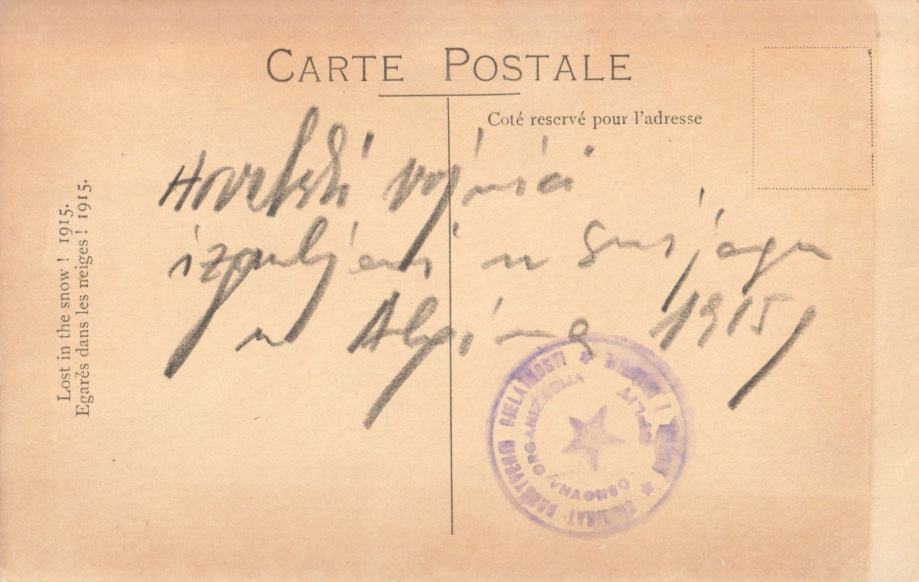 CARTE POSTALE
Coté reservé pour l'adresse
Lost in the snow! 1915.
Egarés dans les neiges! 1915.
Hrvatski vojnici
izgubljeni u snijegu
u Alpima 1915,
DJELATNOSTI
OSNOVNA ORGANIZACIJA
SPLIT